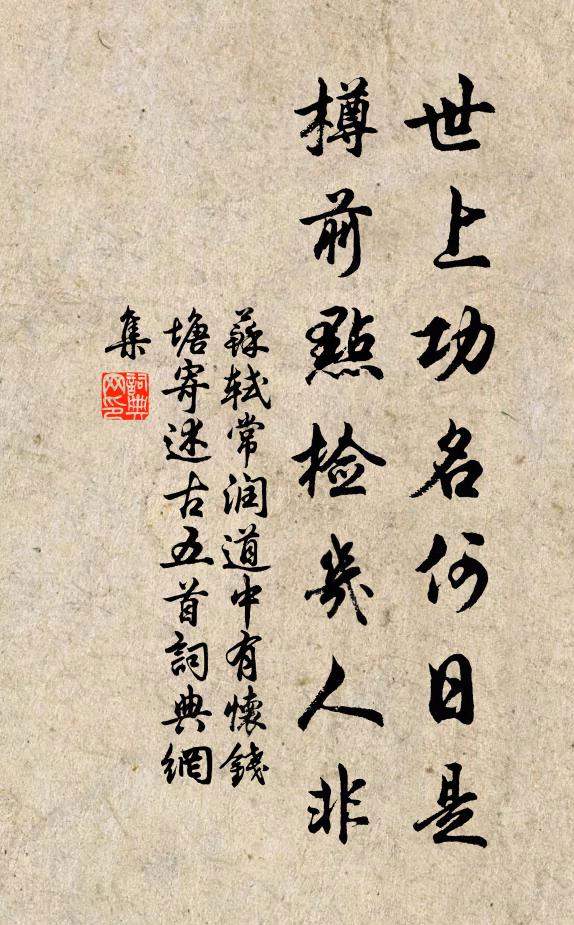 世上功名何日是
樽前點檢幾人非
蘇軾常润道中有懷錢
塘寄述古五首詞典網
集
詞典
网印